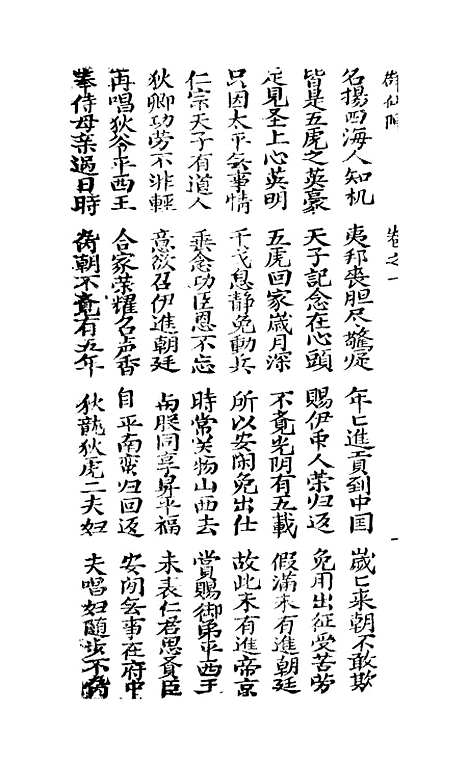 卷之一
一
名揚四海人知机 夷邦丧胆尽驚疑 年匕進貢到中国 歲匕来朝不敢欺
皆是五虎之英豪 天子記念在心頭 賜伊 人荣归返 免用出征受苦劳
足見圣上心英明 五虎回家歲月深 不竟光阴有五載 假滿未有進朝廷
只因太平无事情 干戈息静免動兵 所以安闲免出仕 故此未有進帝京
仁宗天子有道人 乘念功臣恩不忘 時常关物山西去 賞賜御弟平西王
狄卿功劳不非輕 意欲召伊進朝廷 同享昇平福 未表仁君思 臣
再唱狄爷平西王 合家荣耀名声香 自平南蛮归回返 安闲无事在府中
奉侍母亲過日時 朝不竟有五年 狄龍狄虎二夫妇 夫唱妇隨步不